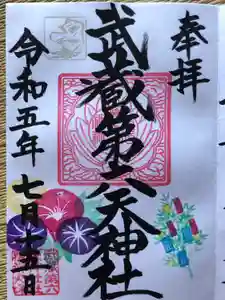 奉拝
武蔵第六天神社
令和五年七月十五日